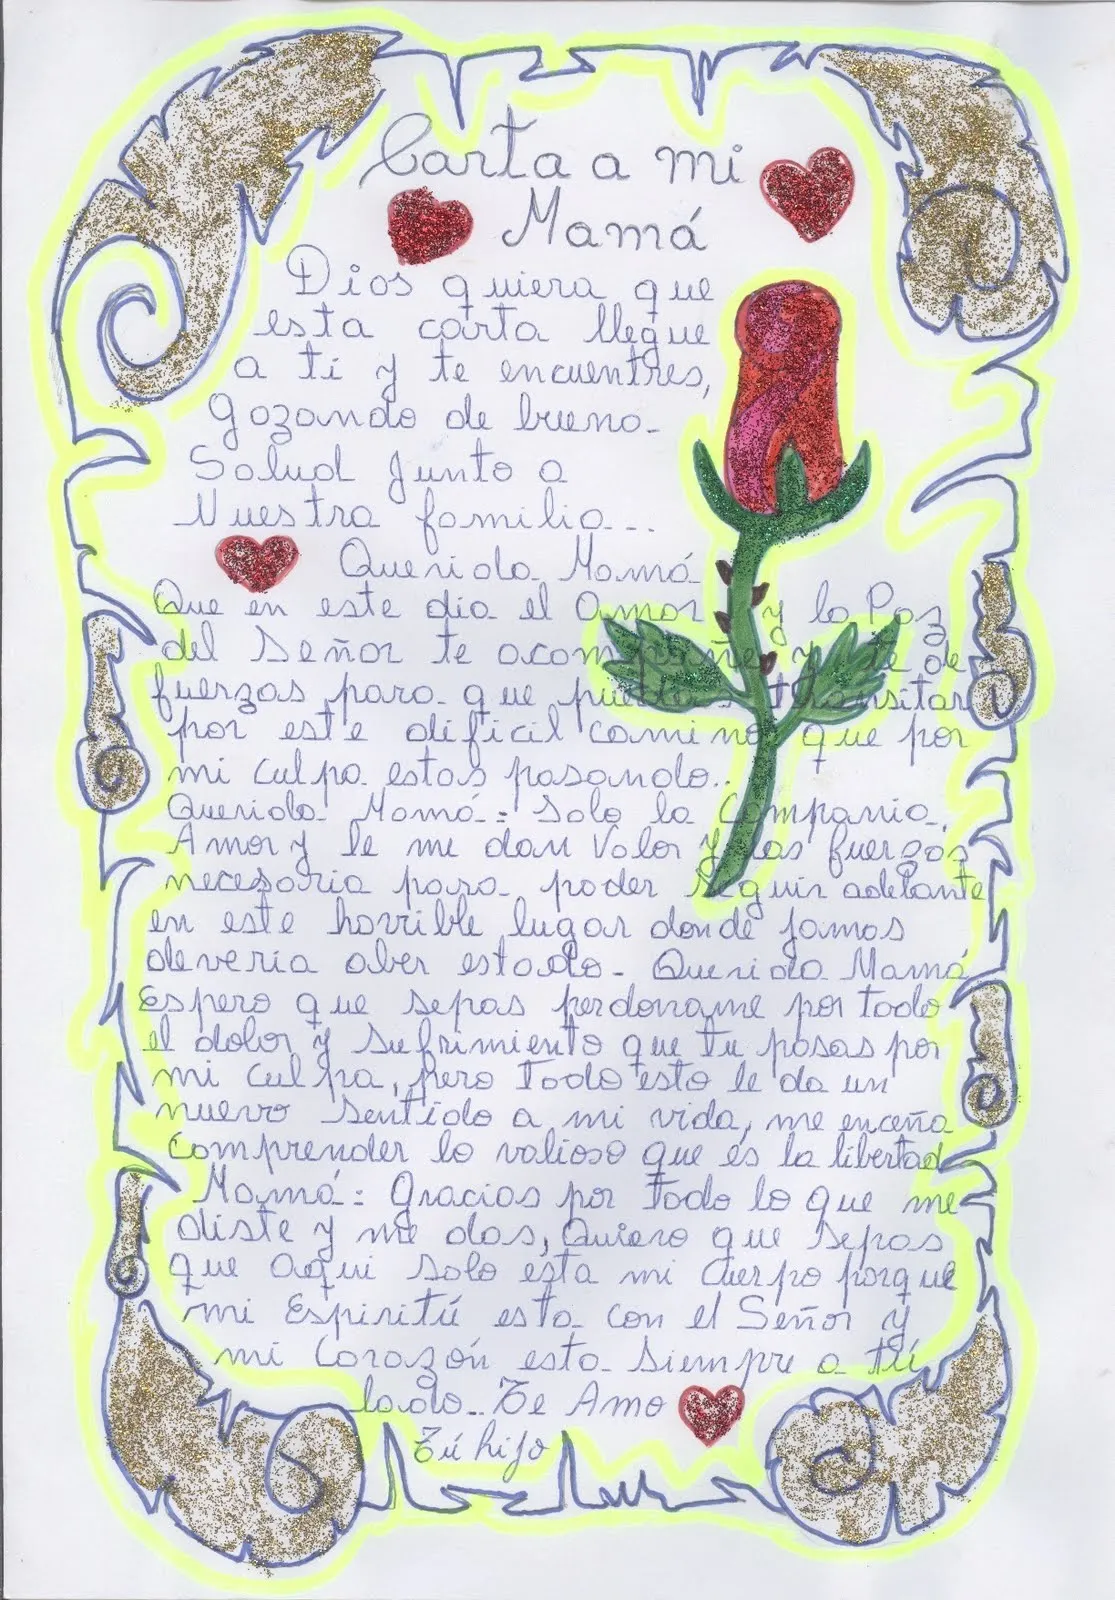 Carta a mi
Mamá
Dios quiera que
esta carta llegue
a ti y te encuentres,
Gozando de buena
Salud Junto a
Nuestra familia...
Querida Mamá
Que en este dia el Amor y la Paz
del Señor te acompañe y te de
fuerzas para que puedas transitar
por este dificil camino que por
mi culpa estas pasando..
Querida Mamá: Solo la Compania,
Amor y le me dan Valor y las fuerzas
necesaria para poder seguir adelante
en este horrible lugar donde jamas
deveria aber estado. Querida Mamá
Espero que sepas perdoname por todo
el dolor y sufrimiento que tu pasas por
mi culpa, pero todo esto le da un
nuevo sentido a mi vida, me enceña
Comprender lo valioso que es la libertad
Mamá: Gracias por todo lo que me
diste y me das, Quiero que sepas
que Aqui solo esta mi cuerpo porque
mi Espiritú esta con el Señor y
mi Corazón esta siempre a tú
lado.. Te Amo
Tú hijo